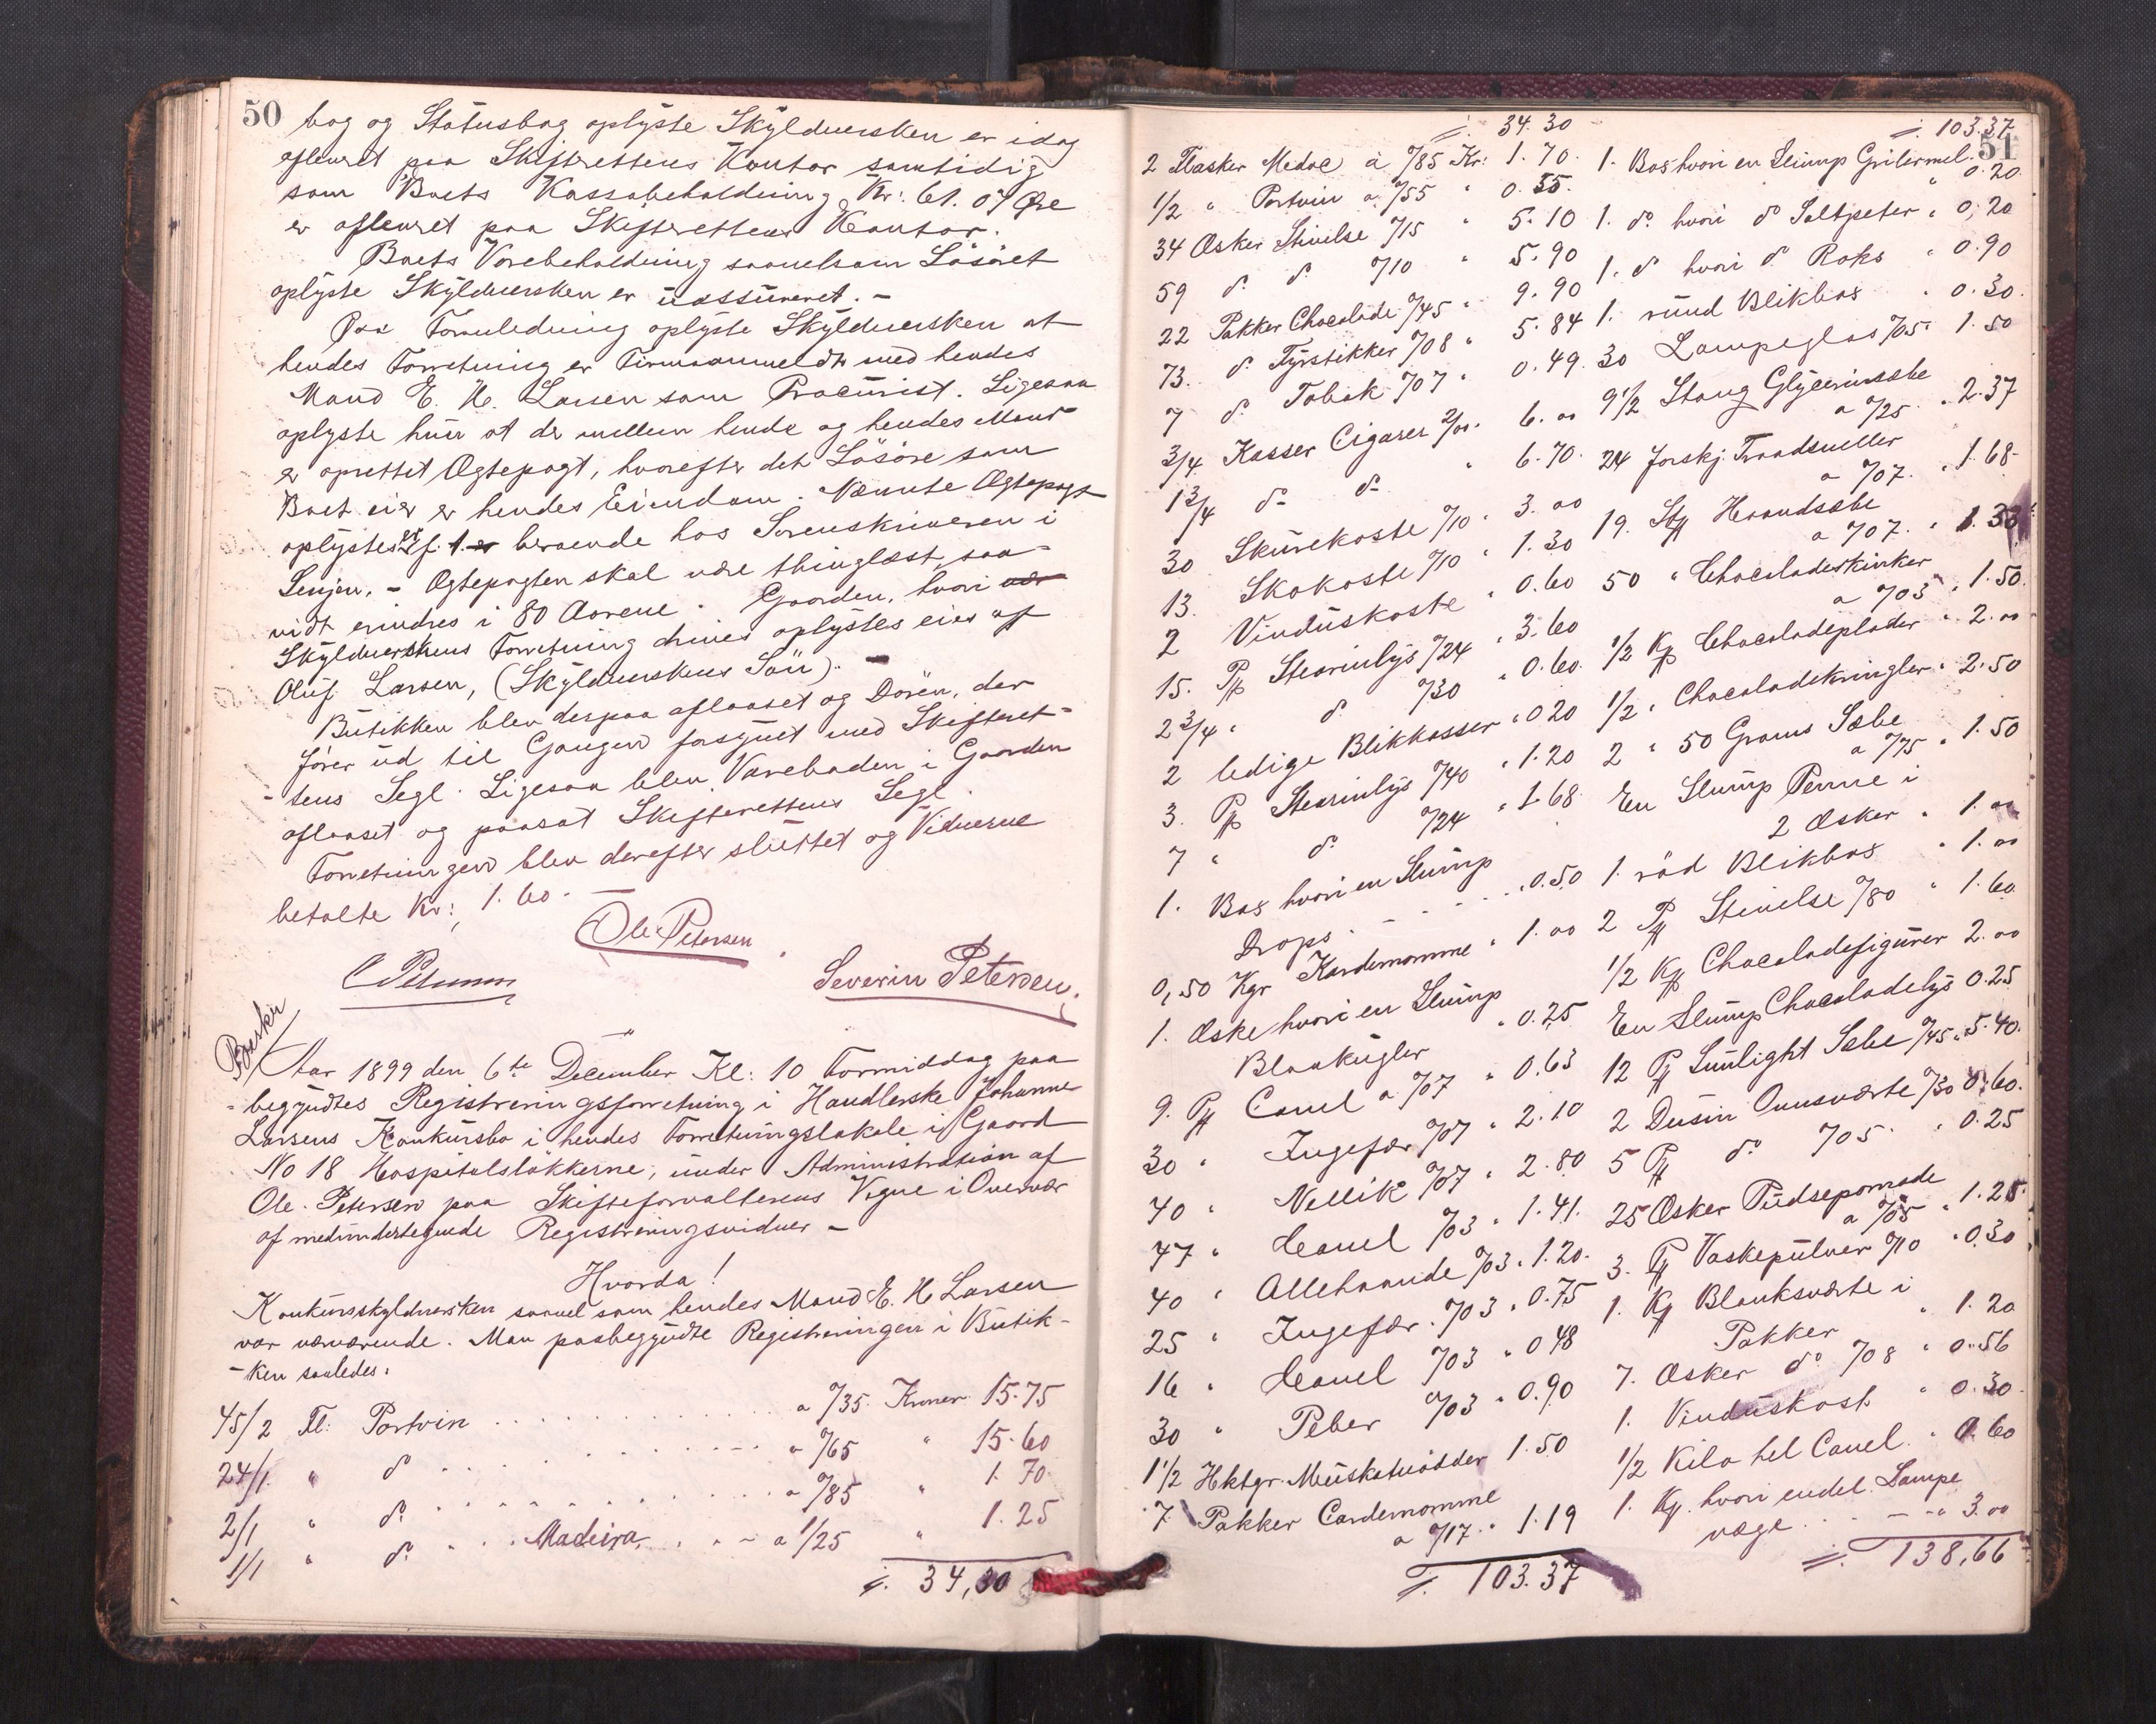 50
bog og Statusbog oplyste Skyldnersken er idag
afleveret paa Skifterettens Kontor samtidig
som Boets Kassabeholdning Kr: 61.07 Øre
er afleveret paa Skifterettens Kontor.
Boets Varebeholdning saavelsom Løsøret
oplyste Skyldnersken er uassureret. -
Paa Foranledning oplyste Skyldnersken at
hendes Forretning er Firmaanmeldt med hendes
Mand E. H. Larsen som Procurist. Ligesaa
oplyste hun at der mellem hende og hendes Mand
er oprettet Ægtepagt, hvorefter det Løsøre som
Boet eier er hendes Eiendom. Nævnte Ægtepagt
oplystes beroende hos Sorenskriveren i
Senjen. - Ægtepagten skal være thinglæst, saa-
vidt erindres i 80 Aarene. Gaarden, hvori
Skyldnerskens Forretning drives oplystes eies af
Oluf Larsen, (Skyldnerskens Søn). -
Butikken blev derpaa aflaaset og Døren, der
fører ud til Gangen forsynet med Skifteret-
-tens Segl. Ligesaa blev Vareboden i Gaarden
aflaaset og paasat Skifterettens Segl.
Forretningen blev derefter sluttet og Vidnerne
betalte Kr: 1.60. -
Ole Petersen
Severin Petersen.
Aar 1899 den 6te December Kl: 10 Formiddag paa
-begyndtes Registreringsforretning i Handlerske Johanne
Larsens Konkursbo i hendes Forretningslokale i Gaard
No 18 Hospitalsløkkerne, under Administration af
Ole Petersen paa Skifteforvalterens Vegne i Overvær
af medundertegnede Registreringsvidner -
Hvorda!
Konkursskyldnersken saavelsom hendes Mand E. H. Larsen
var nærværende. Man paabegyndte Registreringen i Butik-
-ken saaledes:
45/2 Fl: Portvin a 0/35 Kroner 15.75
24/1 " do a 0/65 " 15.60
2/1 " do a 0/85 " 1.70
1/1 " do Madeira a 1/25 " 1.25
34,30
51
34.30
2 Flasker Medoc à 0/85 Kr: 1.70.
1/2 " Portvin a 0/55 " 0.55.
34 Æsker Stivelse 0/15 " 5.10
59 do do 0/10 " 5.90
22 Pakker Chocolade 0/45 " 9.90
73. do Fyrstikker 0/08 " 5.84
7 do Tobak 0/07 " 0.49.
3/4 Kasser Cigarer 6.00
1 3/4 do do " 6.70.
30 Skurekoste 0/10 " 3.00
13. Skokoste 0/10 " 1.30
2 Vinduskoste " 0.60
15. Pk Stearinlys 0/24 " 3.60
2 3/4 " do 0/30 " 0.60
2 ledige Blikkasser " 0 20
3. Pk Stearinlys 0/40 " 1.20
7 " do 0/24 " 1.68
1. Box hvori en Slump
Drops " 0.50
0,50 Kgr Kardemomme " 1.00
1. Æske hvori en Slump
Blaakugler " 0.25
9. Pk Canel a 0/07 " 0.63
30 " Ingefær 0/07 " 2.10
40 " Nellik 0/07 " 2.80
47 " Canel 0/03 " 1.41.
40 " Allehaande 0/03 " 1.20.
25 " Ingefær. 0/03 " 0.75
16 " Canel 0/03 " 0 48
30 " Peber 0/03 " 0.90
1 1/2 Hktgr. Muskatnødder 1.50
7. Pakker Cardemomme
a 0/17 " 1.19
103.37
103.37
1. Box hvori en Slump Grilermel.
" 0.20
1. do hvori do Saltpeter " 0,20
1. do hvori do Roks " 0.90
1. rund Blikbox " 0.30.
30 Lampeglas 0/05 " 1.50
9 1/2 Stang Glycerinsæbe
a 0/25 " 2.37
24 forskj. Traadsneller
a 0/07. " 1.68
19. Stk Haandsæbe
a 0/07. " 1.33
50 " Chocoladeskinker
a 0/03 " 1.50.
1/2 Kg Chocoladeplader " 2.00
1/2 " Chocoladekringler " 2.50
2 " 50 Grams Sæbe
a 0/75 " 1.50
En Slump Penne i
2 Æsker " 1.00
1. rød Blikbox " 1.00
2 Pk Stivelse 0/80 " 1.60
1/2 Kg Chocoladefigurer 2.00
En Slump Chocoladelys 0.25
12 Pk Sunlight Sæbe 0/45 " 5.40.
2 Dusin Ovnsværte 0/30 0.60.
5 Pk do 0/05 " 0.25
25 Æsker Pudsepomade
a 0/05 " 1.25
3. Pk Vaskepulver 0/10 " 0.30
1. Kg Blanksværte i
Pakker " 1.20
7. Æsker do 0/08 " 0.56
1. Vinduskost " 0.30
1/2 Kilo hel Canel. " 0.60
1. Kg. hvori endel Lampe
væge " 3.00
138,66